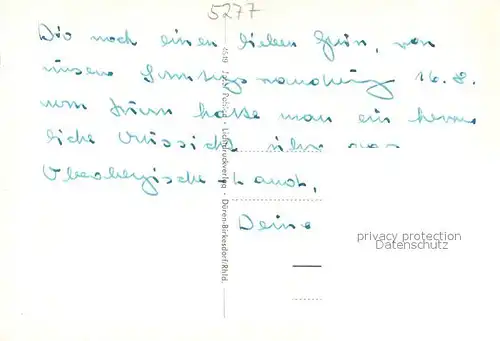 5277
Dir noch einen lieben Gruß, von
unserer Sonntagswanderung 16.8.
vom Turm hatte man ein herr-
liche Aussicht über das
Oberbergische Land.
Deine
Lichtdruckverlag - Düren-Birkesdorf/Rhld.
privacy protection
Datenschutz